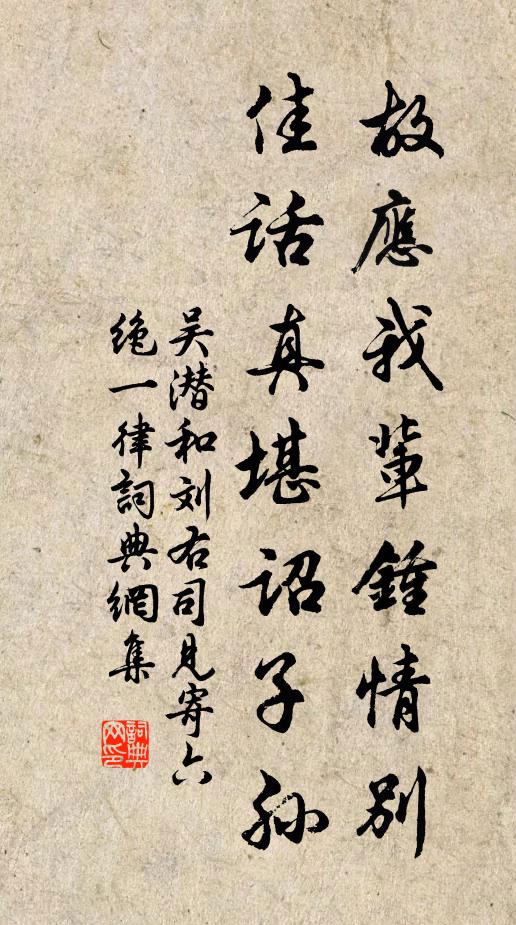 故應我輩鍾情別
佳話真堪詔子孫
吴潜和刘右司見寄六
绝一律詞典網集
詞典网印